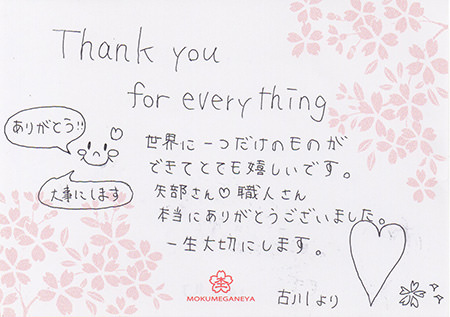 Thank you
for everything
ありがとう!!
大事にします
世界に一つだけのものが
できてとても嬉しいです。
矢部さん♡職人さん
本当にありがとうございました。
一生大切にします。
古川より
MOKUMEGANEYA